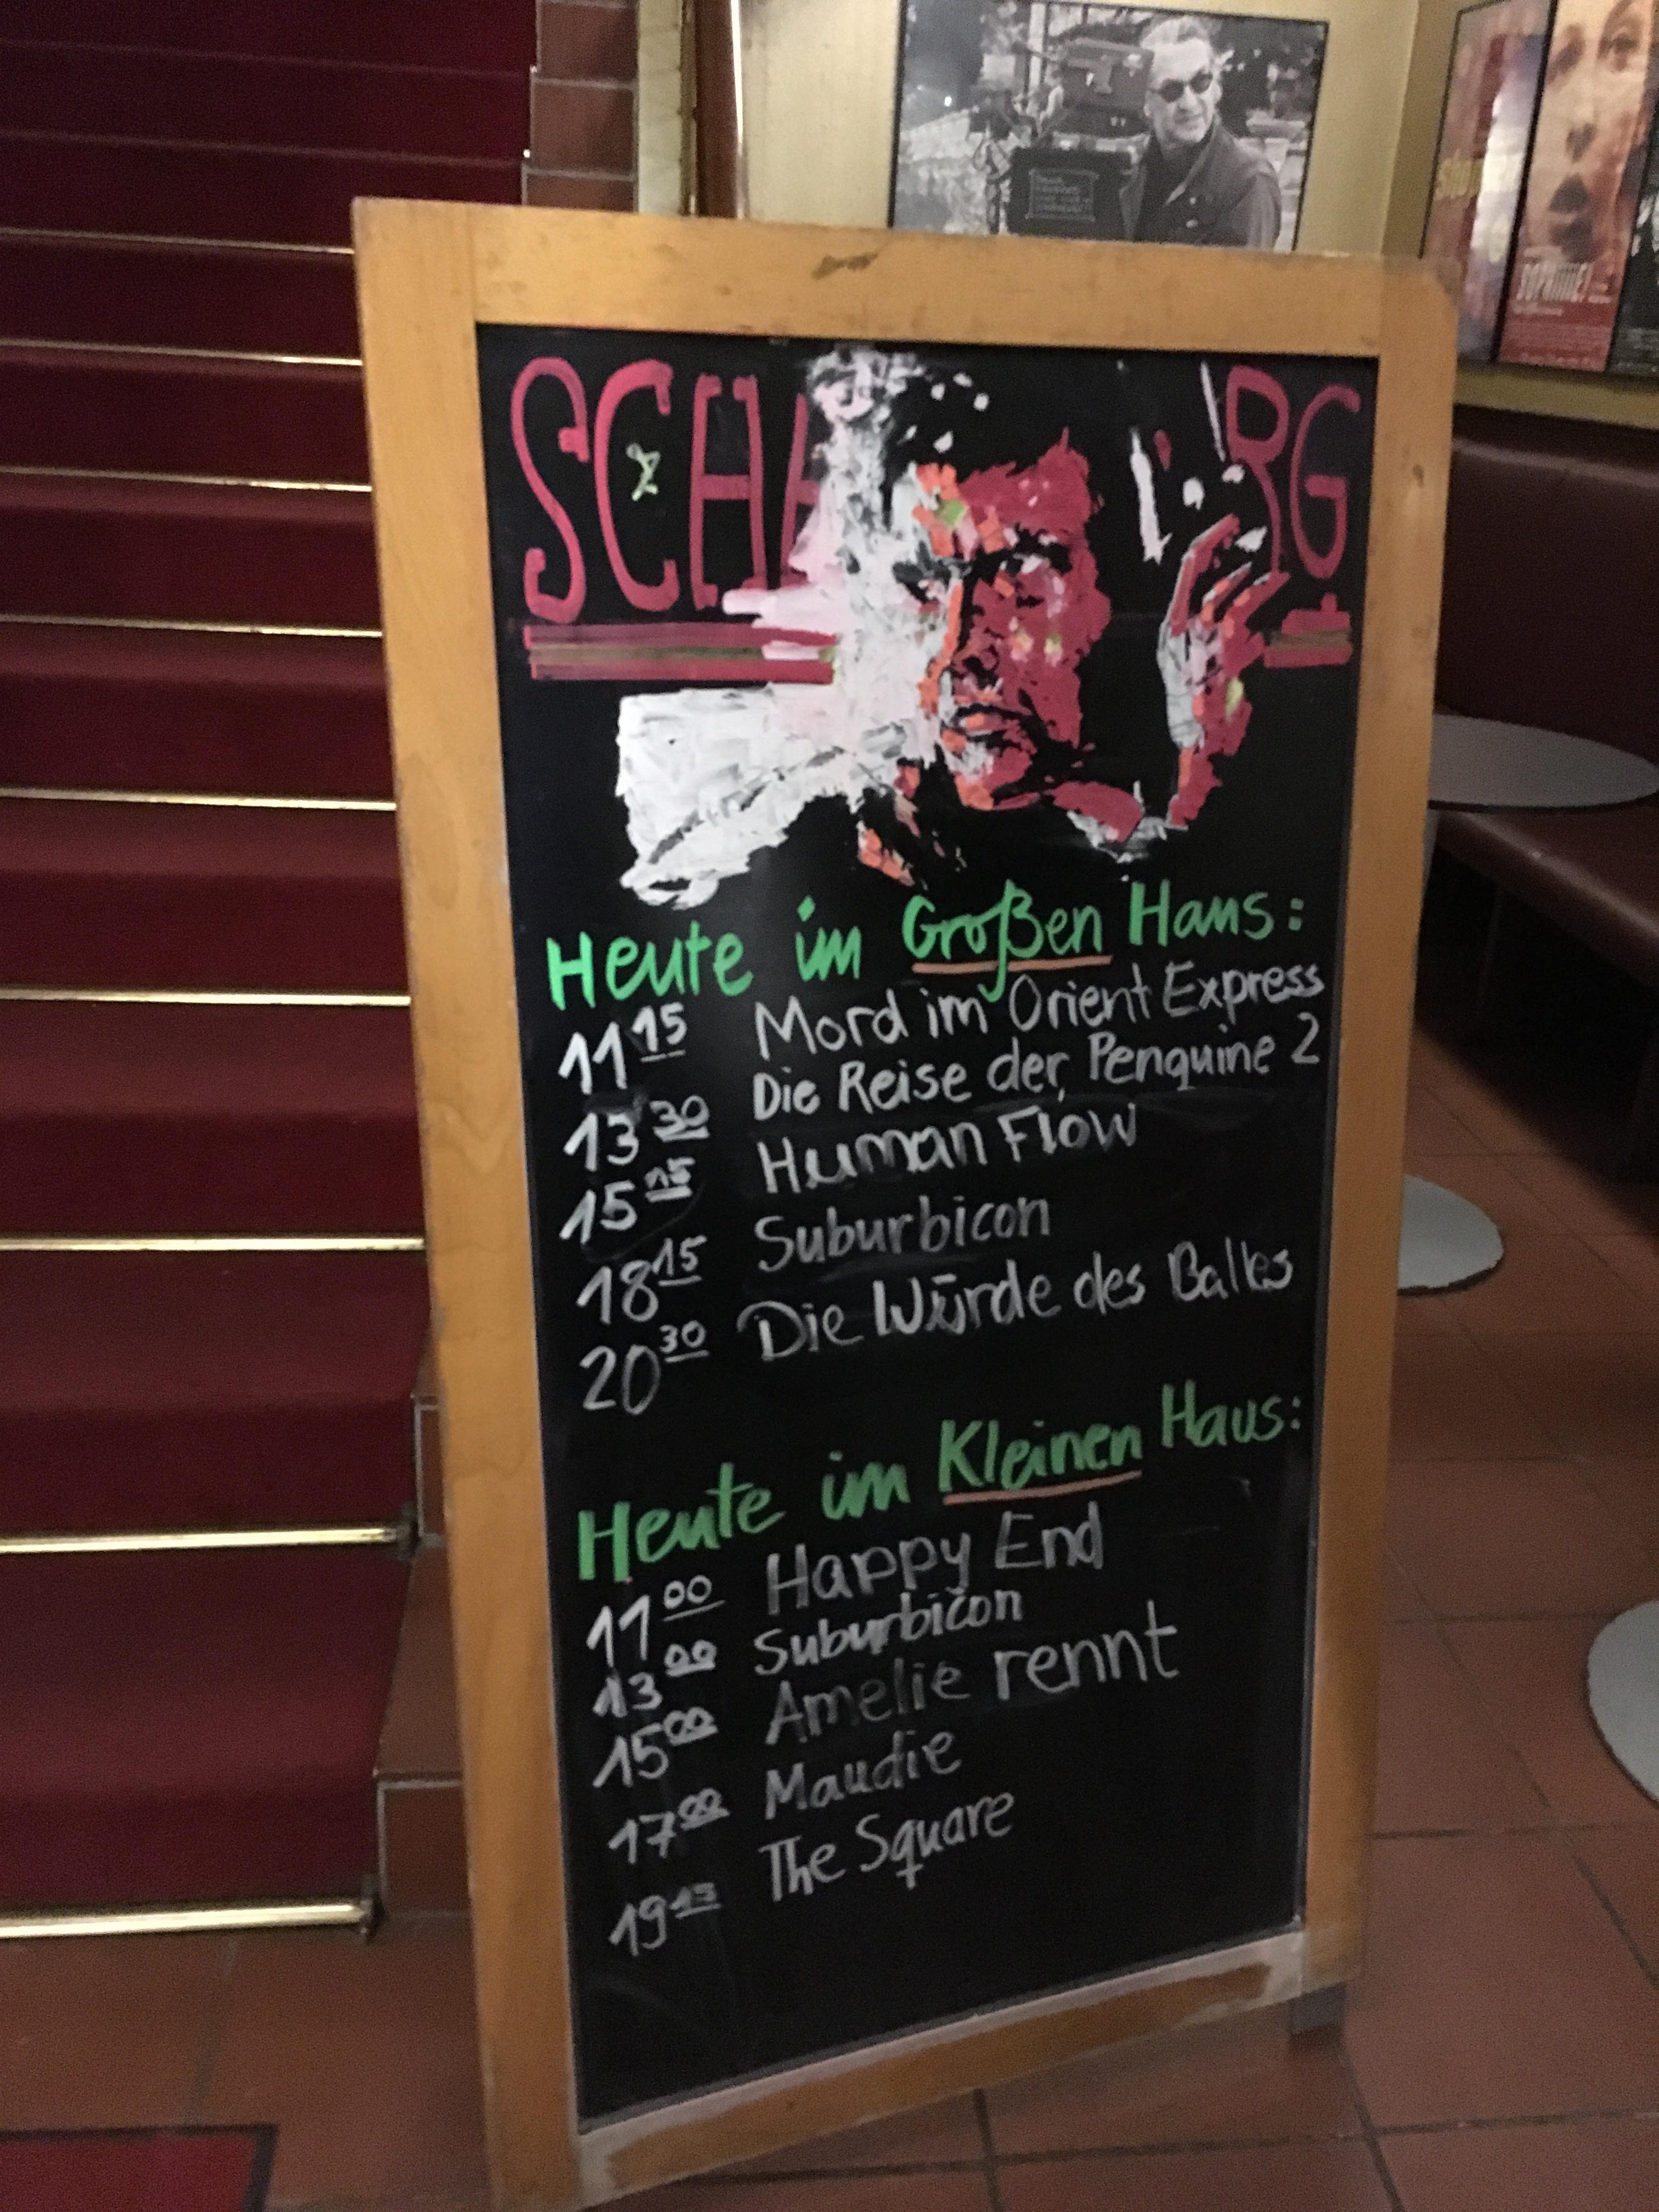 SCHA RG
Heute im Großen Haus:
11 15 Mord im Orient Express
13 30 Die Reise der Penquine 2
15 15 Human Flow
18 15 Suburbicon
20 30 Die Würde des Balles
Heute im Kleinen Haus:
11 00 Happy End
13 00 Suburbicon
15 00 Amelie rennt
17 00 Maudie
19 15 The Square